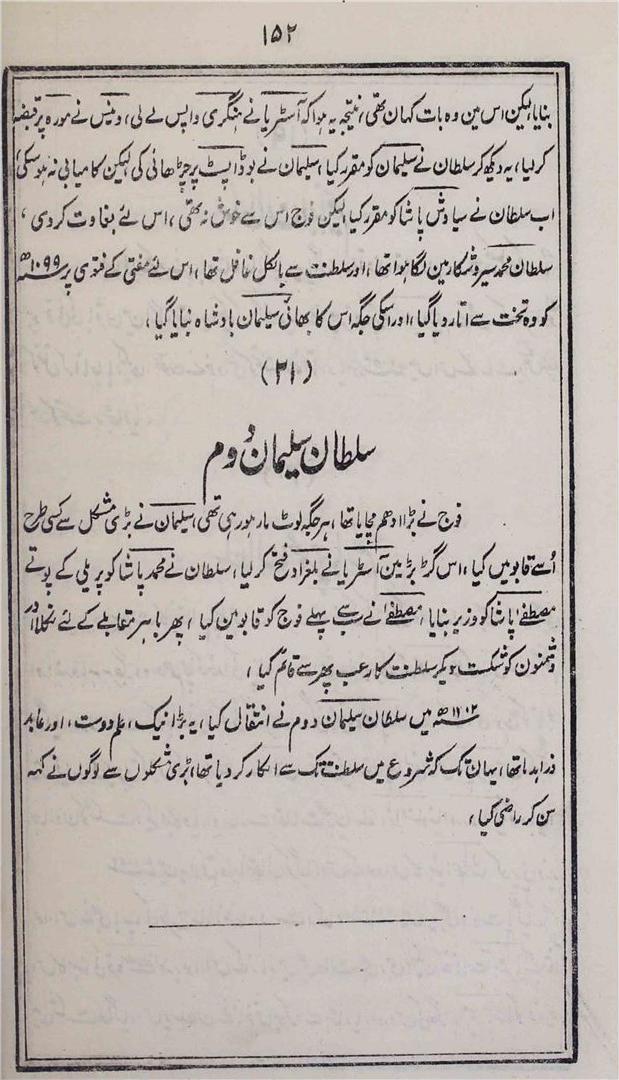 ۱۵۲
بنایا، لیکن اس مین وہ بات کہان تھی، نتیجہ یہ ہوا کہ آسٹریا نے ہنگری واپس لے لی، وینس نے مورہ پر قبضہ
کر لیا، یہ دیکھ کر سلطان نے سلیمان کو مقرر کیا، سلیمان نے بوڈاپسٹ پر چڑھائی کی لیکن کامیابی نہ ہوسکی،
اب سلطان نے سیاوش پاشا کو مقرر کیا لیکن فوج اس سے خوش نہ تھی، اس لئے بغاوت کردی،
سلطان محمد سیر و شکار مین لگا ہوا تھا، اور سلطنت سے بالکل غافل تھا، اس لئے مفتی کے فتوی پر ۱۰۹۹ھ
کو وہ تخت سے اتار دیا گیا، اور اسکی جگہ اس کا بھائی سلیمان بادشاہ بنایا گیا،
(۲۱)
سلطان سلیمان دُوم
فوج نے بڑا ادھم مچایا تھا، ہر جگہ لوٹ مار ہو رہی تھی، سلیمان نے بڑی مشکل سے کسی طرح
اُسے قابو میں کیا، اس گڑبڑ مین آسٹریا نے بلغراد فتح کر لیا، سلطان نے محمد پاشا کوپریلی کے پوتے
مصطفےٰ پاشا کو وزیر بنایا، مصطفےٰ نے سب پہلے فوج کو قابو مین کیا، پھر باہر مقابلے کے لئے نکلا اور
دشمنون کو شکست دیکر سلطنت کا رعب پھر سے قائم کیا،
۱۱۰۲ھ میں سلطان سلیمان دوم نے انتقال کیا، یہ بڑا نیک، علم دوست، اور عابد
و زاہد تھا، یہان تک کہ شروع میں سلطنت تک سے انکار کر دیا تھا، بڑی مشکلوں سے لوگوں نے کہہ
سن کر راضی کیا،